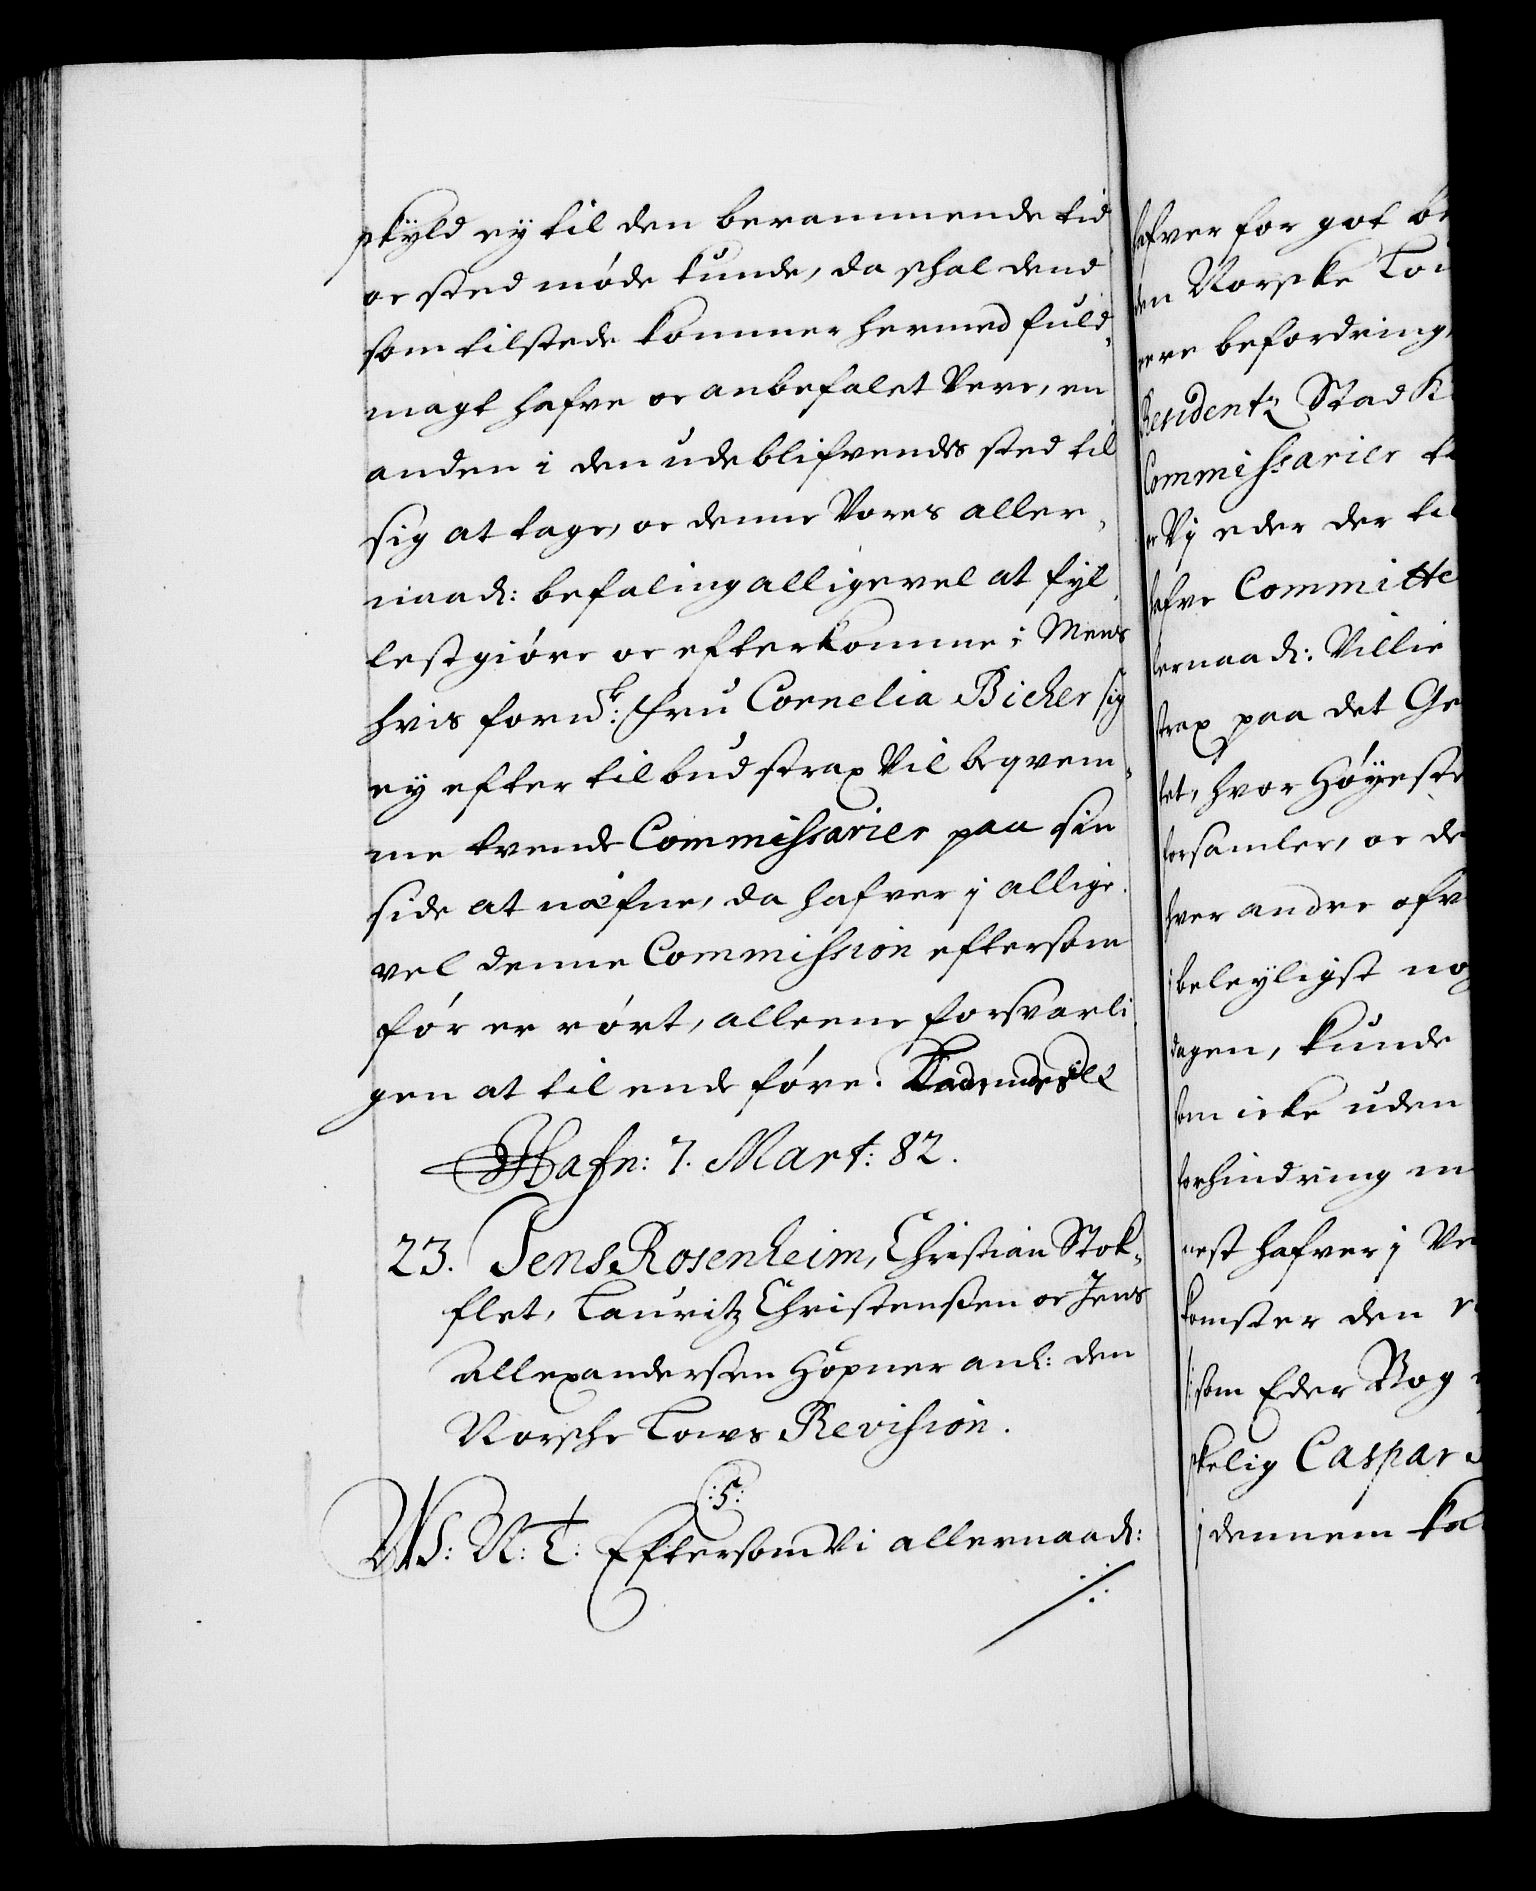 skyld ey til den berammende tid
oc sted møde kunde, da schal dend
som tilstede kommer hermed fuld„
magt hafve oc anbefalet Vere, en
anden i den udeblifvendes sted til
sig at tage, oc denne Vores aller„
naadr: befaling alligevel at fyl„
lestgiøre oc efterkomme; Mens
hvis fornr: Fru Cornelia Bicker sig
ey efter tilbud strax Vil beqvem„
me tvende Commissarier paa sin
side at næfne, da hafver j allige„
vel denne Commission eftersom
før er rørt, alleene forsvarli„
gen at til ende føre.
Hafn: 7. Mart: 82.
23. Jens Rosenheim, Christian Stok„
flet, Lauritz Christensen oc Jens
Allexandersen Høpner anl: den
Norsche Lows Revision.
:5:
W S: N: T: Eftersom Vi allernaadr:
hafver for got be
den Norske Lou
mere befordring,
Residentz Stad K
Commissarier
oc Vj eder der til
hafve Committe
lernaadr: Villie
strax paa det Ge
tet, hvor Høyeste
forsamler, oc de
hver andre ofv
beleyligst no
dagen, kunde
som icke uden
forhindring m
nest hafver j Ve
komster den
som Eder Bog
skelig Caspar
j dennem ka